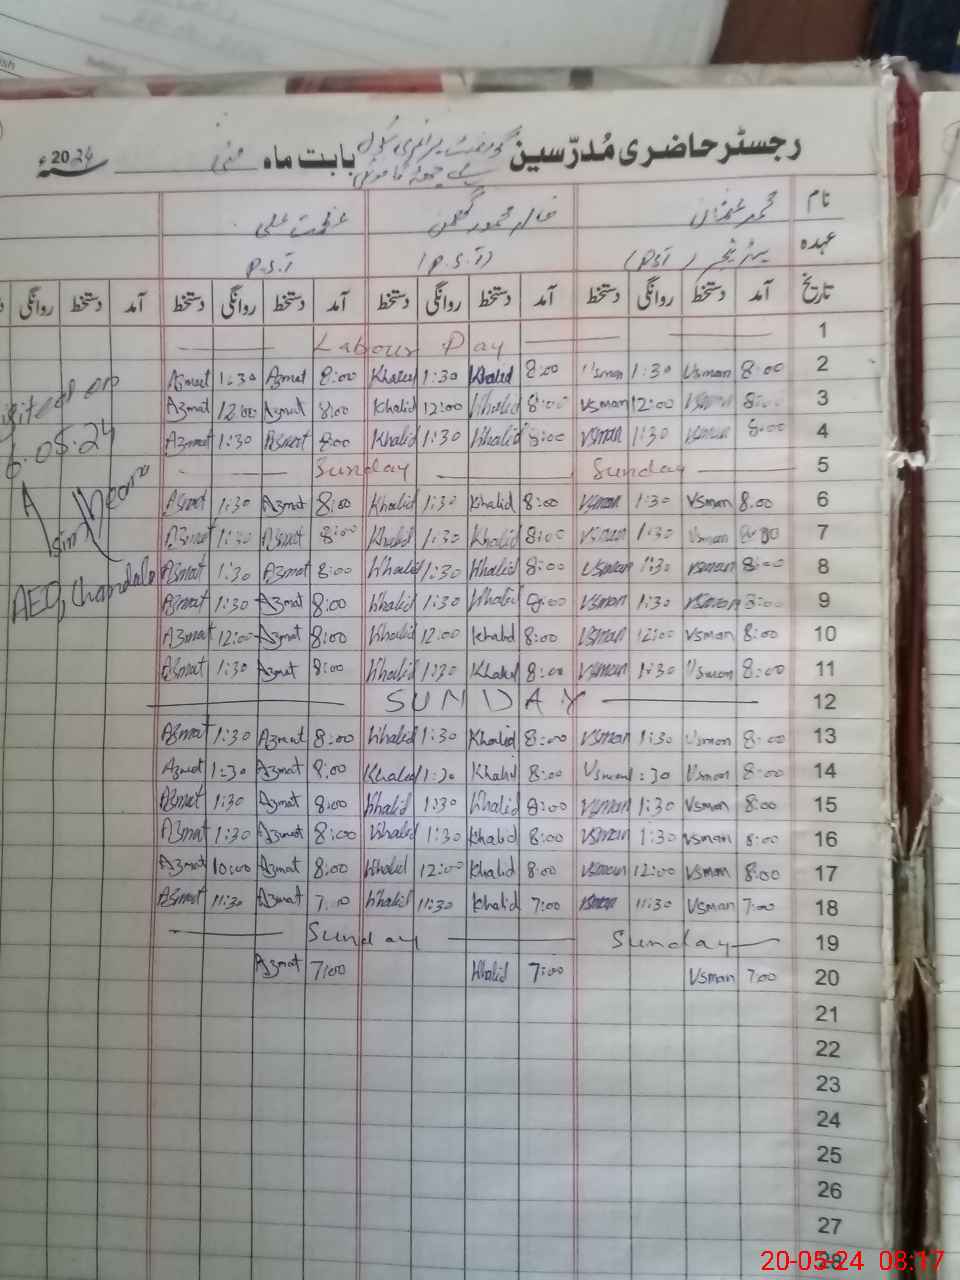 رجسٹر حاضری مُدرّسین گورنمنٹ پرائمری سکول بابت ماہ مئی 2024ء
نام محمد عثمان خالد محمود عظمت علی
عہدہ (P.S.T) P.S.T
تاریخ آمد دستخط روانگی دستخط آمد دستخط روانگی دستخط آمد دستخط روانگی دستخط آمد دستخط روانگی
1 Labour Day
2 8:00 Usman 1:30 Usman 8:00 Khalid 1:30 Khalid 8:00 Azmat 1:30 Azmat
3 8:00 Usman 12:00 Usman 8:00 Khalid 12:00 Khalid 8:00 Azmat 12:00 Azmat
4 8:00 Usman 1:30 Usman 8:00 Khalid 1:30 Khalid 8:00 Azmat 1:30 Azmat
5 Sunday Sunday
6 8:00 Usman 1:30 Usman 8:00 Khalid 1:30 Khalid 8:00 Azmat 1:30 Azmat
7 8:00 Usman 1:30 Usman 8:00 Khalid 1:30 Khalid 8:00 Azmat 1:30 Azmat
8 8:00 Usman 1:30 Usman 8:00 Khalid 1:30 Khalid 8:00 Azmat 1:30 Azmat
9 8:00 Usman 1:30 Usman 8:00 Khalid 1:30 Khalid 8:00 Azmat 1:30 Azmat
10 8:00 Usman 12:00 Usman 8:00 Khalid 12:00 Khalid 8:00 Azmat 12:00 Azmat
11 8:00 Usman 1:30 Usman 8:00 Khalid 1:30 Khalid 8:00 Azmat 1:30 Azmat
12 SUNDAY
13 8:00 Usman 1:30 Usman 8:00 Khalid 1:30 Khalid 8:00 Azmat 1:30 Azmat
14 8:00 Usman 1:30 Usman 8:00 Khalid 1:30 Khalid 8:00 Azmat 1:30 Azmat
15 8:00 Usman 1:30 Usman 8:00 Khalid 1:30 Khalid 8:00 Azmat 1:30 Azmat
16 8:00 Usman 1:30 Usman 8:00 Khalid 1:30 Khalid 8:00 Azmat 1:30 Azmat
17 8:00 Usman 12:00 Usman 8:00 Khalid 12:00 Khalid 8:00 Azmat 10:00 Azmat
18 7:00 Usman 11:30 Usman 7:00 Khalid 11:30 Khalid 7:00 Azmat 11:30 Azmat
19 Sunday Sunday
20 7:00 Usman 7:00 Khalid 7:00 Azmat
21
22
23
24
25
26
27
28
05.24
AEO,
20-05-24 08:17